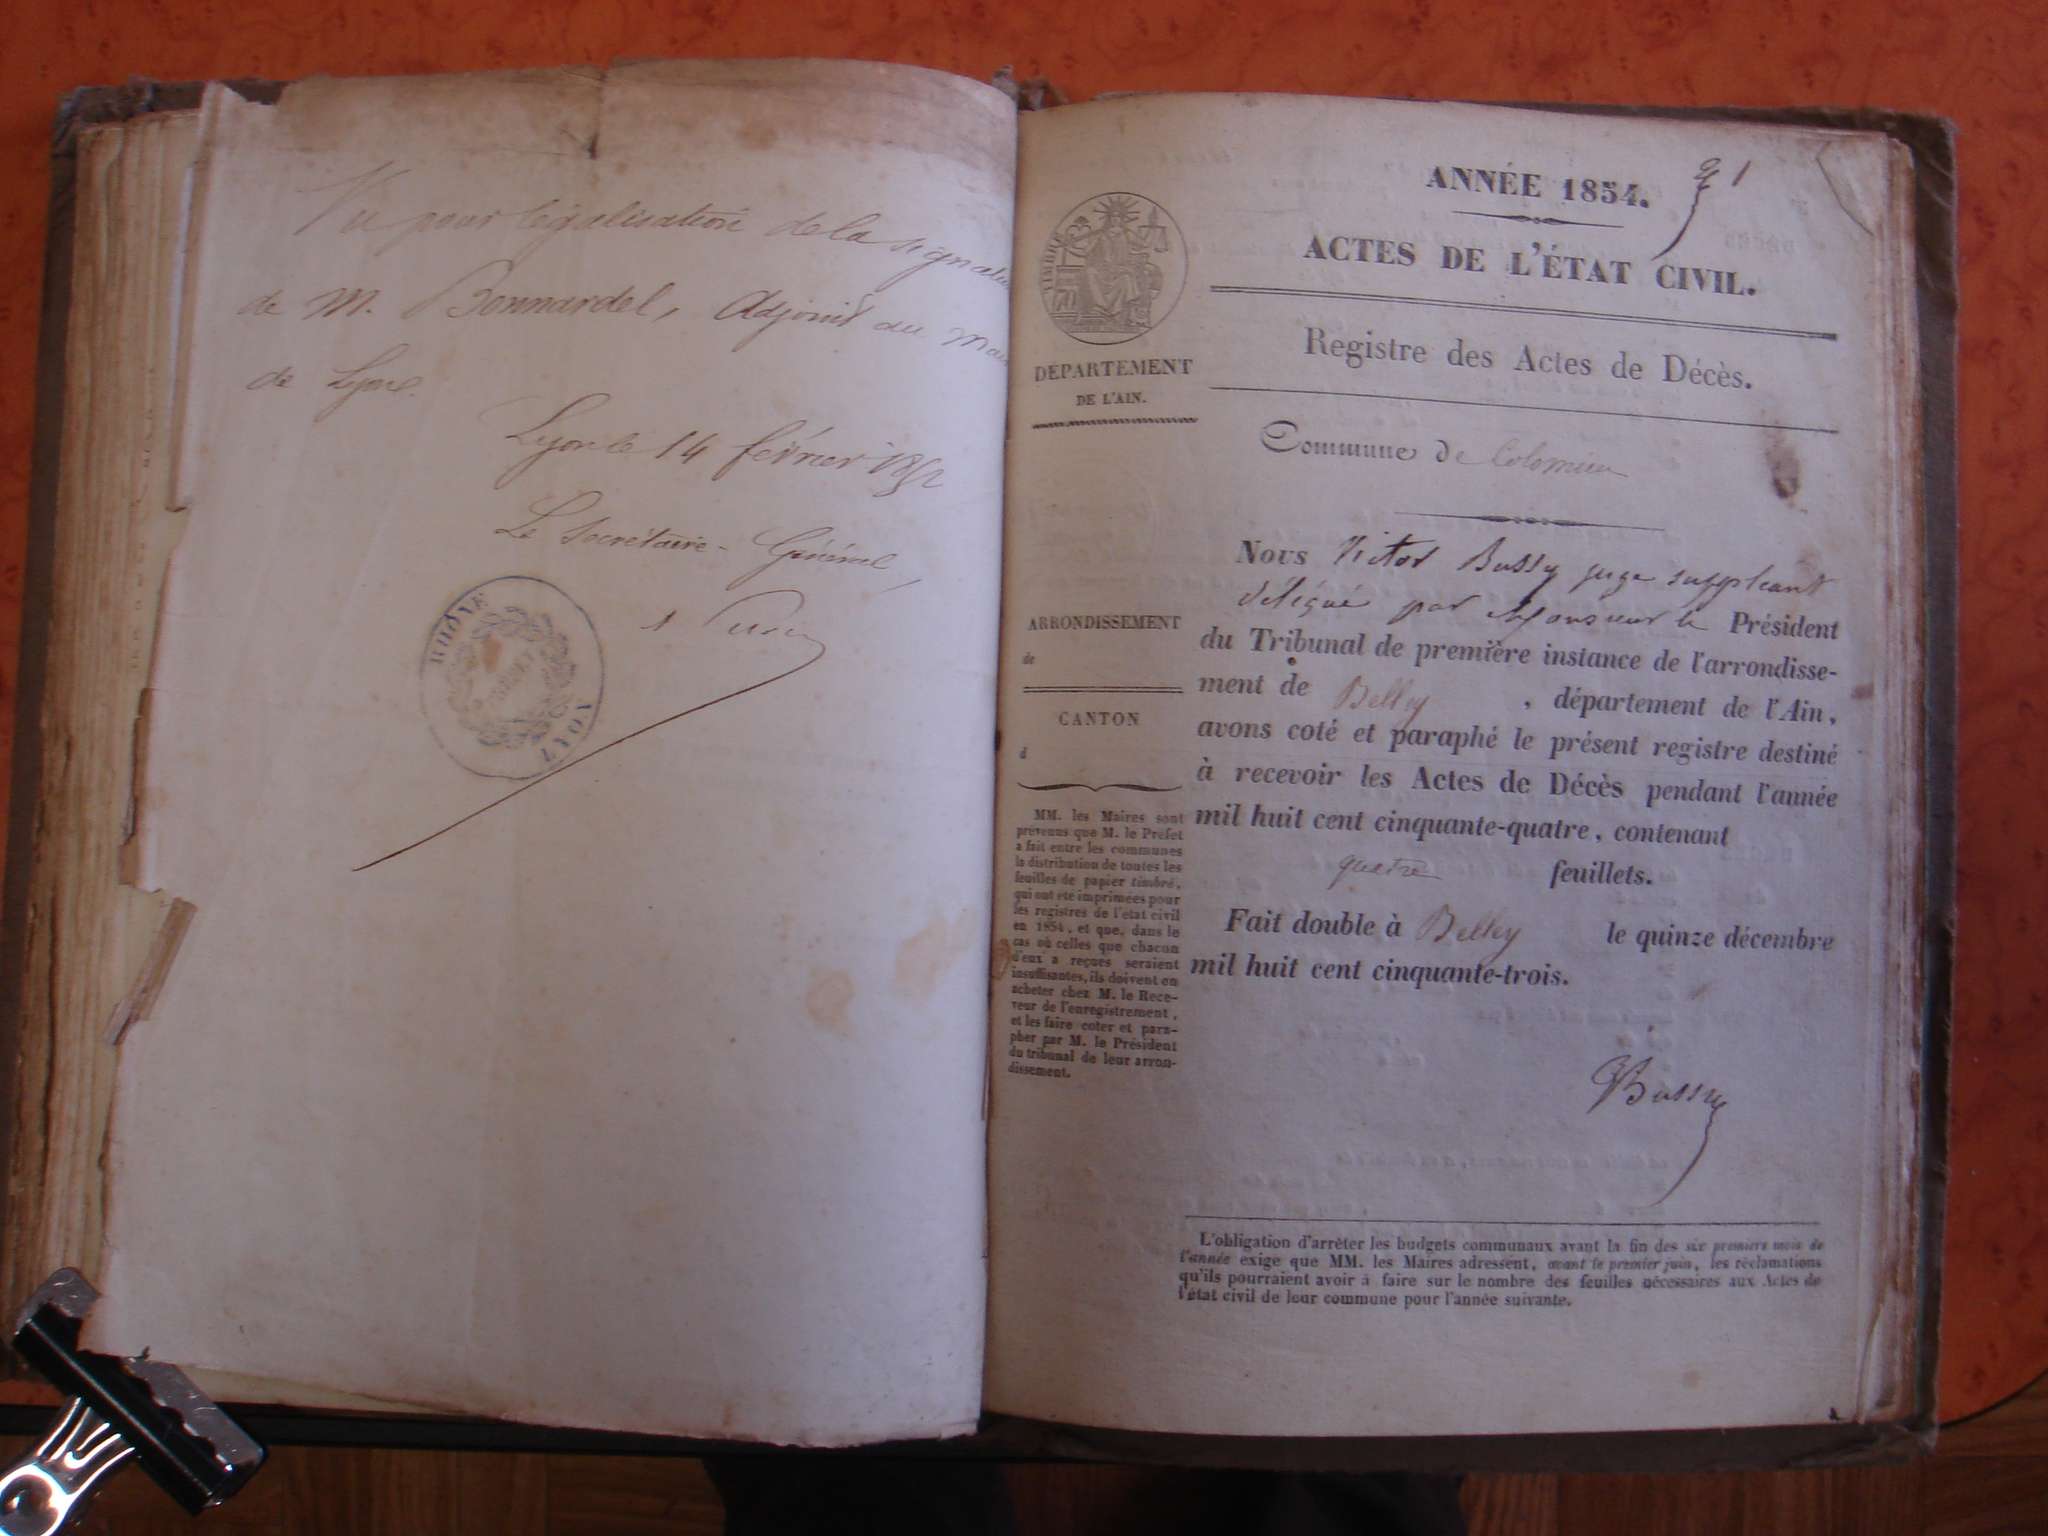 Vu pour légalisation de la signatu
de M. Bonnardel, Adjoint au Mai
de Lyon.
Lyon le 14 février 1852
Le Secrétaire-Général,
RHÔNE
ANNÉE 1854.
1
ACTES DE L'ÉTAT CIVIL.
Registre des Actes de Décès.
Commune de Colomieu
TIMBRE
DEPARTEMENT
DE L'AIN.
ARRONDISSEMENT
de
CANTON
d
MM. les Maires sont
prévenus que M. le Préfet
a fait entre les communes
la distribution de toutes les
feuilles de papier timbré,
qui ont été imprimées pour
les registres de l'état civil
en 1854, et que, dans le
cas où celles que chacun
d'eux a reçues seraient
insuffisantes, ils doivent en
acheter chez M. le Rece-
veur de l'enregistrement,
et les faire coter et para-
pher par M. le Président
du tribunal de leur arron-
dissement.
Nous Victor Bussy juge suppléant
délégué par Monsieur le Président
du Tribunal de première instance de l'arrondisse-
ment de Belley, département de l'Ain,
avons coté et paraphé le présent registre destiné
à recevoir les Actes de Décès pendant l'année
mil huit cent cinquante-quatre, contenant
quatre feuillets.
Fait double à Belley le quinze décembre
mil huit cent cinquante-trois.
VBussy
L'obligation d'arrêter les budgets communaux avant la fin des six premiers mois de
l'année exige que MM. les Maires adressent, avant le premier juin, les réclamations
qu'ils pourraient avoir à faire sur le nombre des feuilles nécessaires aux Actes de
l'état civil de leur commune pour l'année suivante.